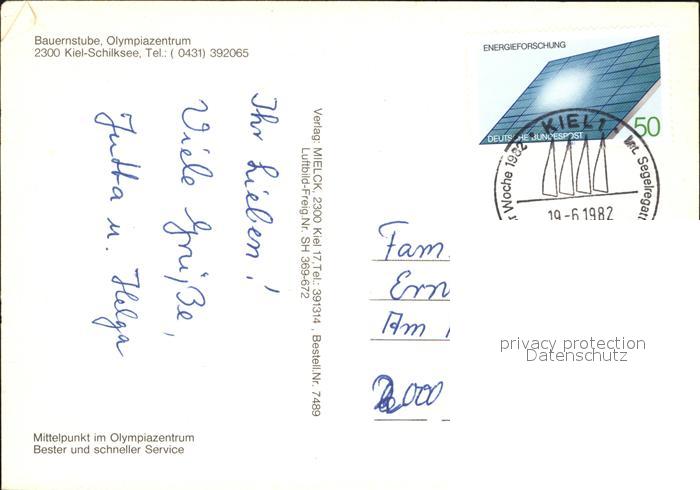 Bauernstube, Olympiazentrum
2300 Kiel-Schilksee, Tel.: ( 0431) 392065
Ihr Lieben!
Viele Grüße,
Jutta u. Helga
Verlag: MIELCK, 2300 Kiel 17,Tel.: 391314 , Bestell.Nr. 7489
Luftbild-Freig.Nr. SH 369-672
ENERGIEFORSCHUNG
DEUTSCHE BUNDESPOST
50
KIEL 1
Woche 1982
Int. Segelregatt
19.-6.1982
Fam.
Ern
Am
2000
privacy protection
Datenschutz
Mittelpunkt im Olympiazentrum
Bester und schneller Service